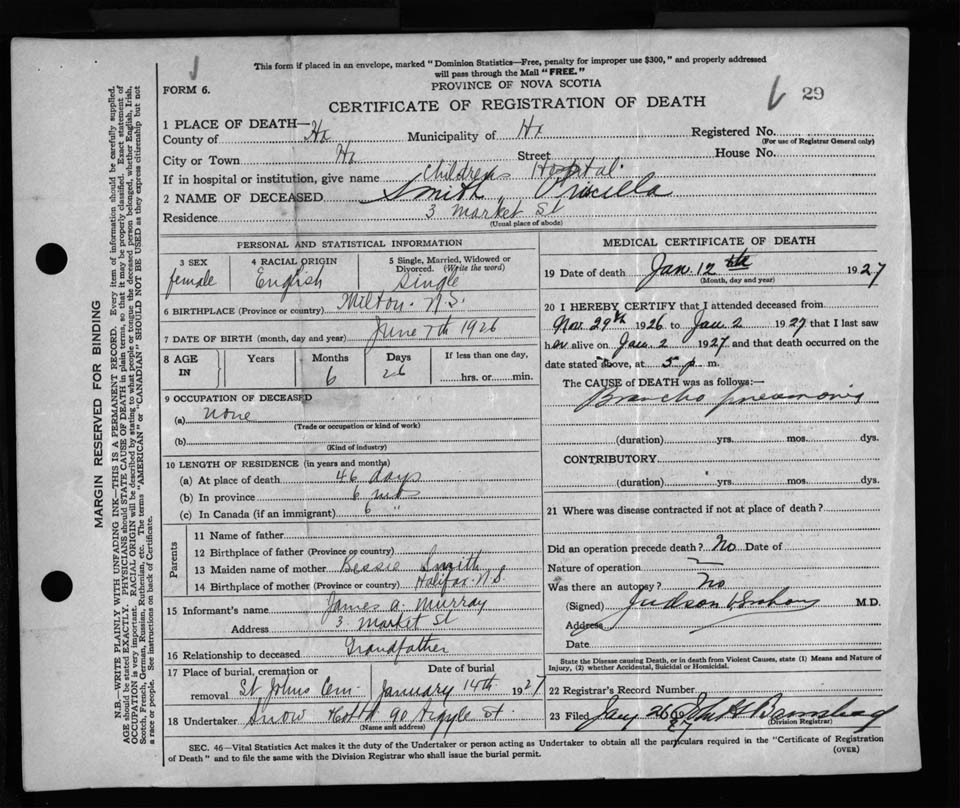 This form if placed in an envelope, marked "Dominion Statistics—Free, penalty for improper use $300," and properly addressed
will pass through the Mail "FREE."
FORM 6.
PROVINCE OF NOVA SCOTIA
CERTIFICATE OF REGISTRATION OF DEATH
29
1 PLACE OF DEATH—
County of Hx Municipality of Hx Registered No.
(For use of Registrar General only)
City or Town Hx Street House No.
If in hospital or institution, give name Childrens Hospital.
2 NAME OF DECEASED Smith Pricilla
Residence 3 Market St
(Usual place of abode)
PERSONAL AND STATISTICAL INFORMATION
3 SEX 4 RACIAL ORIGIN 5 Single, Married, Widowed or
Divorced. (Write the word)
female English Single
6 BIRTHPLACE (Province or country) Milton. N.S.
7 DATE OF BIRTH (month, day and year) June 7th 1926
8 AGE IN Years Months Days If less than one day,
6 26 hrs. or min.
9 OCCUPATION OF DECEASED
(a) none
(Trade or occupation or kind of work)
(b)
(Kind of industry)
10 LENGTH OF RESIDENCE (in years and months)
(a) At place of death 46 days
(b) In province 6 mts
(c) In Canada (if an immigrant) 6 "
Parents
11 Name of father
12 Birthplace of father (Province or country)
13 Maiden name of mother Bessie Smith
14 Birthplace of mother (Province or country) Halifax. N.S.
15 Informant's name James A. Murray
Address 3 Market St
16 Relationship to deceased Grandfather
17 Place of burial, cremation or Date of burial
removal St Johns Cem January 14th 1927
18 Undertaker Snow 90 Argyle St.
(Name and address)
MEDICAL CERTIFICATE OF DEATH
19 Date of death Jan. 12th 1927
(Month, day and year)
20 I HEREBY CERTIFY that I attended deceased from
Nov. 29th 1926 to Jan 2 1927 that I last saw
her alive on Jan. 2 1927 and that death occurred on the
date stated above, at 5 p. m.
The CAUSE of DEATH was as follows:—
Broncho pneumonia
(duration) yrs. mos. dys.
CONTRIBUTORY
(duration) yrs. mos. dys.
21 Where was disease contracted if not at place of death?
Did an operation precede death? No Date of
Nature of operation —
Was there an autopsy? No
(Signed) Judson M.D.
Address
Date
State the Disease causing Death, or in death from Violent Causes, state (1) Means and Nature of
Injury, (2) whether Accidental, Suicidal or Homicidal.
22 Registrar's Record Number
23 Filed Jany 26 27
(Division Registrar)
SEC. 46—Vital Statistics Act makes it the duty of the Undertaker or person acting as Undertaker to obtain all the particulars required in the "Certificate of Registration
of Death" and to file the same with the Division Registrar who shall issue the burial permit.
(OVER)
MARGIN RESERVED FOR BINDING
N.B.—WRITE PLAINLY WITH UNFADING INK—THIS IS A PERMANENT RECORD. Every item of information should be carefully supplied.
AGE should be stated EXACTLY. PHYSICIANS should STATE CAUSE OF DEATH in plain terms, so that it may be properly classified. Exact statement of
OCCUPATION is very important. RACIAL ORIGIN will be described by stating to what people or tongue the deceased person belonged, whether English, Irish,
Scotch, French, German, Russian, Ruthenian, etc. The terms "AMERICAN" or "CANADIAN" SHOULD NOT BE USED as they express citizenship but not
a race or people. See instructions on back of Certificate.